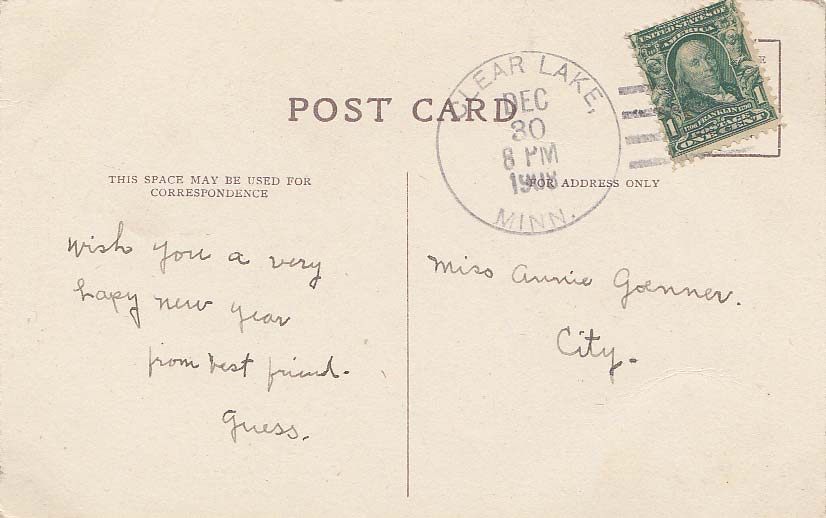 POST CARD
CLEAR LAKE,
DEC
30
8 PM
1908
MINN.
UNITED STATES OF
AMERICA
FRANKLIN
POSTAGE
1 1
ONE CENT
THIS SPACE MAY BE USED FOR
CORRESPONDENCE
FOR ADDRESS ONLY
Wish you a very
hapy new year
from best friend.
Guess.
Miss Annie Goenner.
City.